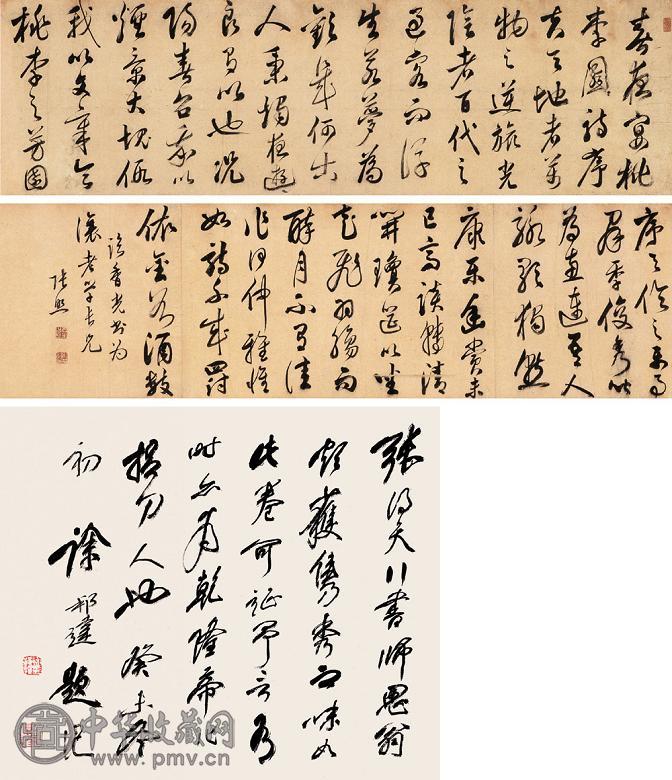 春夜宴桃
李園詩序
夫天地者萬
物之逆旅光
陰者百代之
過客而浮
生若夢為
歡幾何古
人秉燭夜遊
良有以也況
陽春召我以
煙景大塊假
我以文章會
桃李之芳園
序天倫之樂事
群季俊秀皆
為惠連吾人
詠歌獨慚
康樂幽賞未
已高談轉清
開瓊筵以坐
花飛羽觴而
醉月不有佳
作何伸雅懷
如詩不成罰
依金谷酒數
臨香光書為
老學長兄
張照
張得天行書師思翁
頗獲雋秀之味如
此卷可証
時乾隆帝
捉刀人也癸未春
初徐邦達題記
中华收藏网
www.pmv.cn